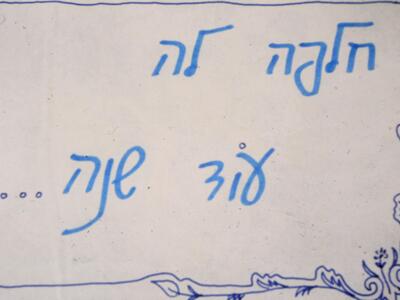 חלפה לה
עוֹד שנה ....